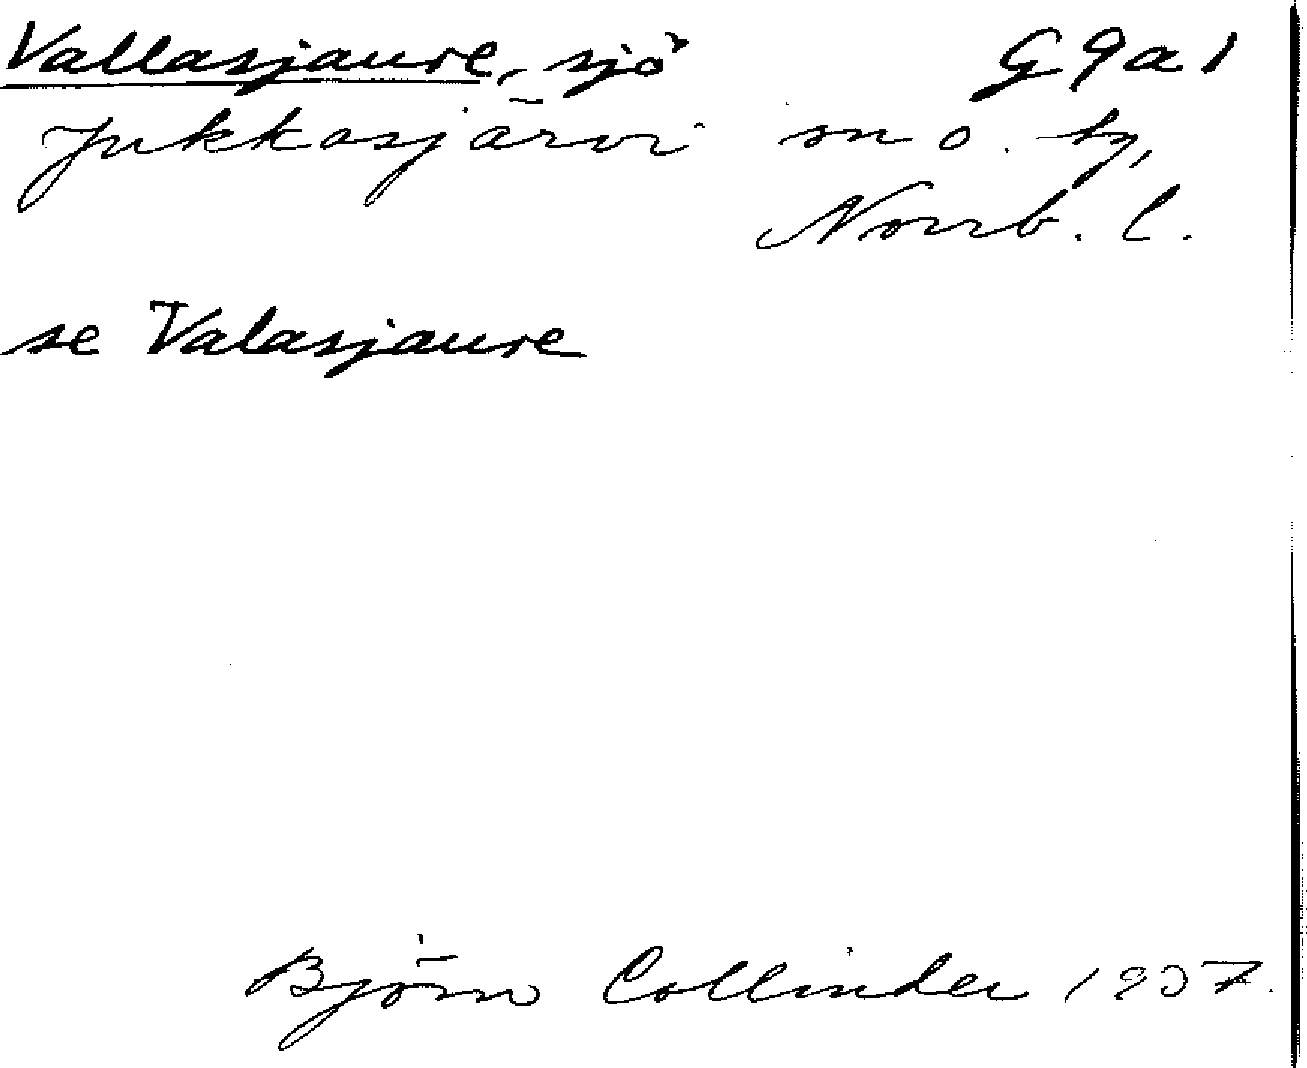 Vallasjaure, sjö G9a1
Jukkasjärvi sn o. tg,
Norrb. l.
se Valasjaure
Björn Collinder 1937.